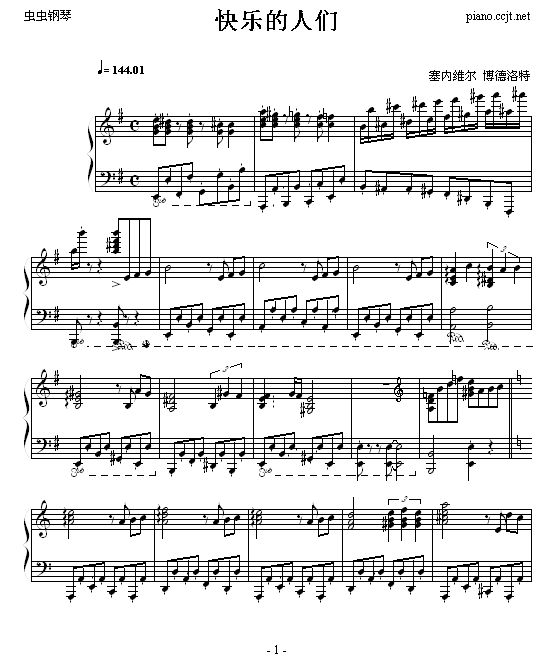 虫虫钢琴
快乐的人们
piano.ccjt.net
♩= 144.01
塞内维尔 博德洛特
3
3
3
3
- 1 -